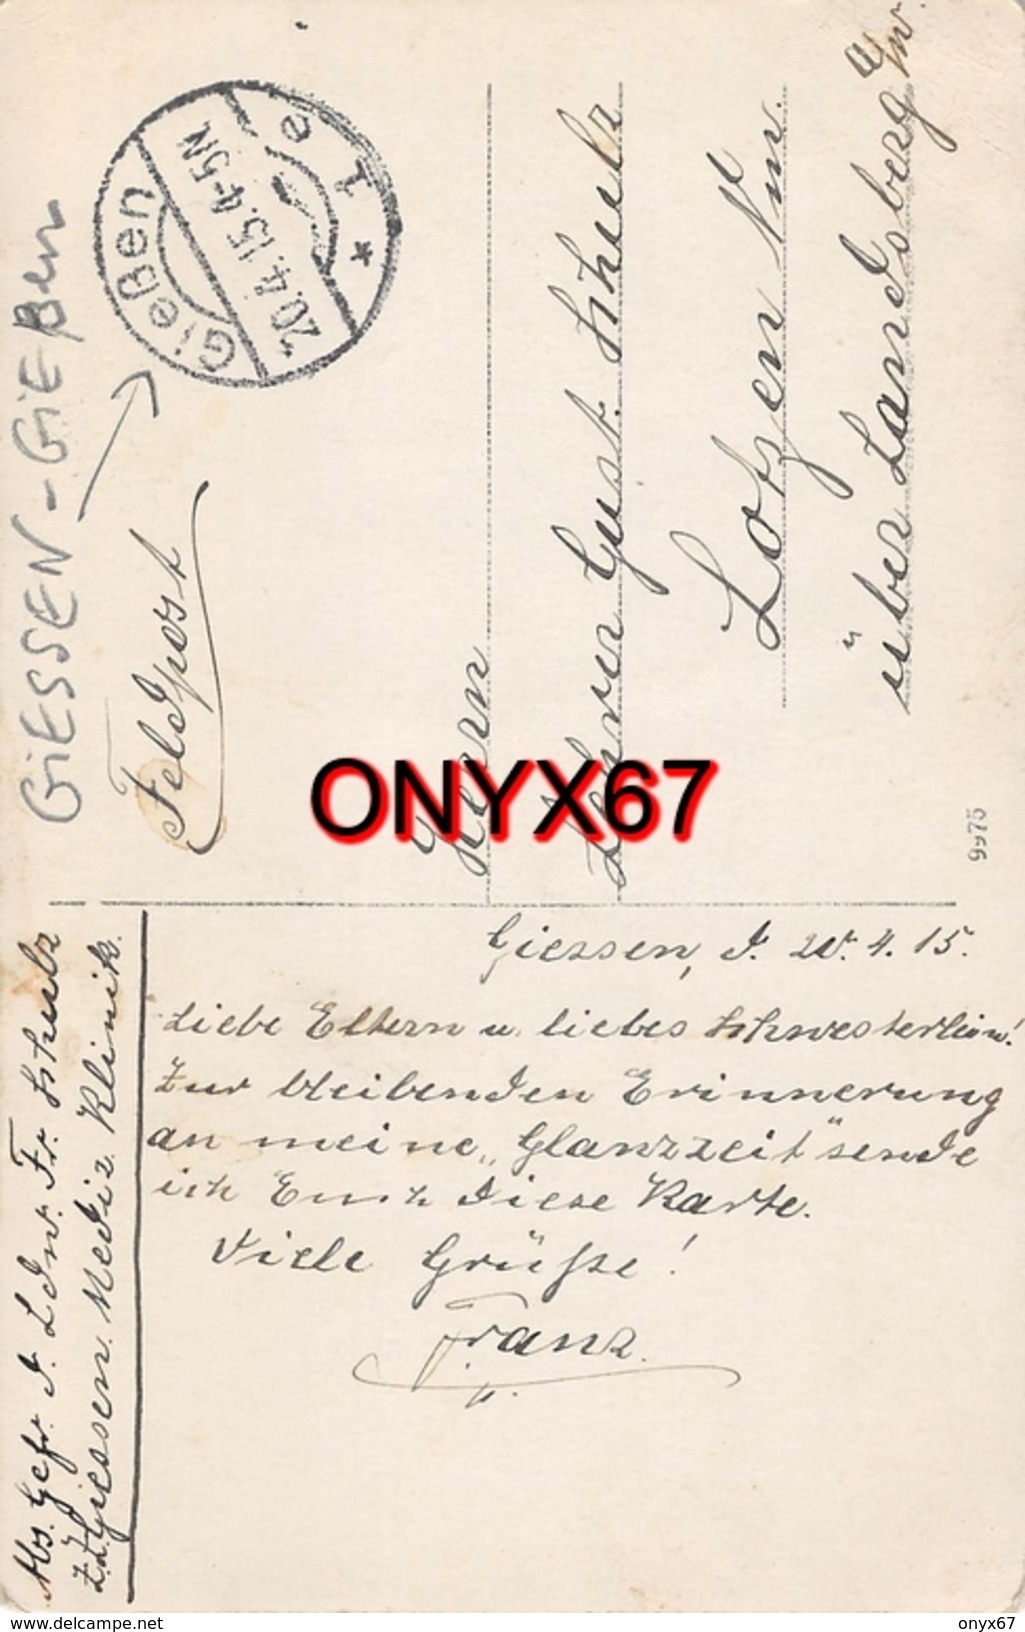 GIESSEN - GIEßen
Gießen
20.4.15.4-5N.
* 1 e
Feldpost
Herrn
Lehrer Gust. Schulz
Lotzen Nm.
über Landsberg a/W.
ONYX67
9975
Abs. Gefr. d. Ldw. Fr. Schulz
z.Z. Giessen. Mediz. Klinik.
Giessen, d. 20. 4. 15.
Liebe Eltern u. liebes Schwesterlein!
Zur bleibenden Erinnerung
an meine „Glanzzeit" sende
ich Euch diese Karte.
Viele Grüße!
Franz.
www.delcampe.net
onyx67